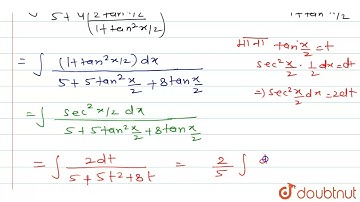 5+4(2tanx/2 / (1+tan²x/2))
1+tan²x/2
= ∫ (1+tan²x/2) dx / (5+5tan²x/2+8tanx/2)
माना tan x/2 = t
sec²x/2 · 1/2 dx = dt
⇒ sec²x/2 dx = 2dt
= ∫ sec²x/2 dx / (5+5tan²x/2+8tanx/2)
= ∫ 2dt / (5+5t²+8t) = 2/5 ∫
doubtnut